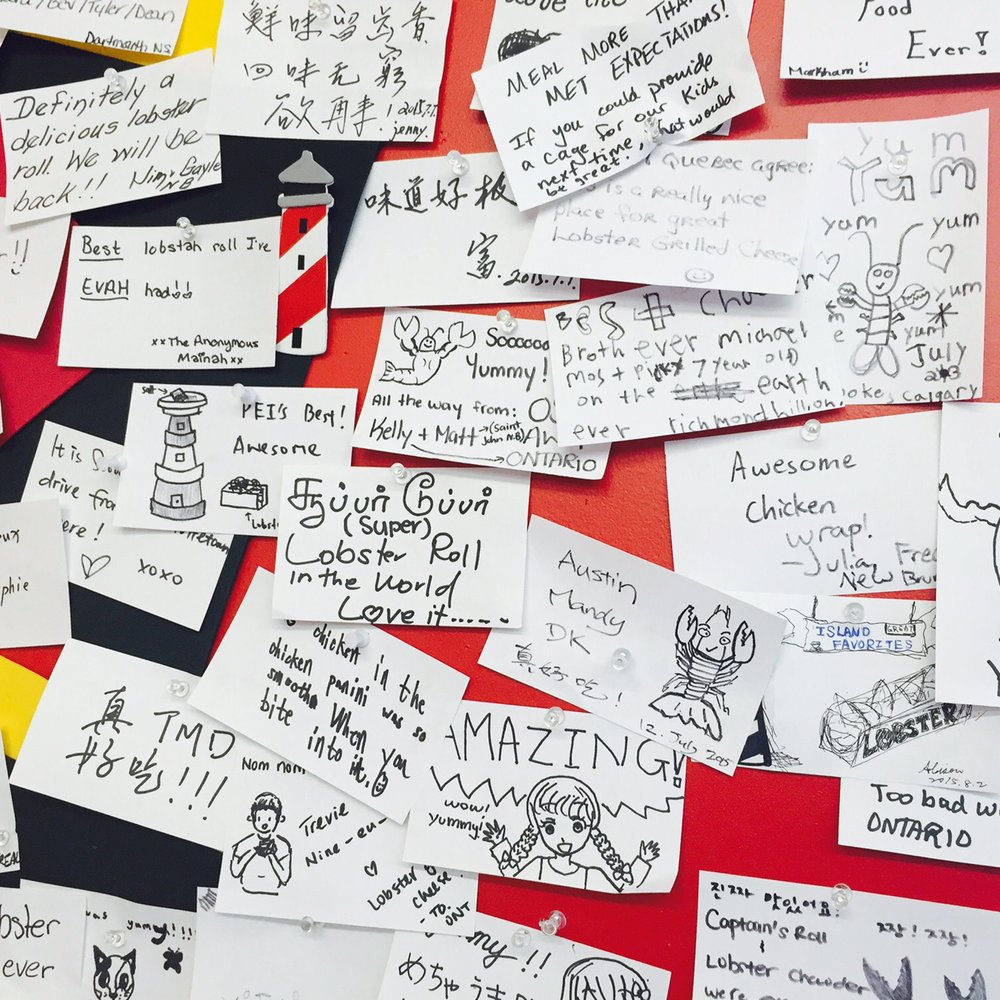 Dartmouth NS
鮮味留齒香
回味无窮
欲再来！2015.7.1
jenny.
MEAL MORE
MET EXPECTATIONS!
If you could provide
a cage for our kids
next time, that would
be great.
Food
Ever!
Markham
Definitely a
delicious lobster
roll. We will be
back!!
Best lobstah roll I're
EVAH had!!
xxThe Anonymous
Mainahxx
味道好极
富. 2015.7.1.
Quebec agree:
is a really nice
place for great
Lobster Grilled Cheese
yum
yum
yum yum
yum
yum
me
July
Calgary
Sooooooo
Yummy!
All the way from:
Kelly + Matt → (Saint John N.B)
ONTARIO
Best
Broth ever michael
7 year old
on the earth
ever richmond hill on.
salt
PEI's Best!
Awesome
↑Lobst
It is
drive from
ere!
xoxo
சூப்பர் சூப்பர்
(Super)
Lobster Roll
in the world
Love it......
Awesome
chicken
wrap!
- Julia, Fred
New Brun
phie
Austin
Mandy
DK
真好吃！
12. July 2015
ISLAND GREAT
FAVORITES
LOBSTER
Alison
2015.8.2
chicken in the
chicken panini was so
smooth When you
bite into it.
真 TMD
好吃!!!
AMAZING!
wow!
yummy!
Nom nom
Trevie
Nine-eu-
Lobster
cheese.
TO. ONT
Too bad w
ONTARIO
REAL
bster
ever
was yummy!!!
ummy!!
めちゃうま
진짜 맛있어요!
Captain's Roll
짱! 짱!
+
Lobster chowder
were